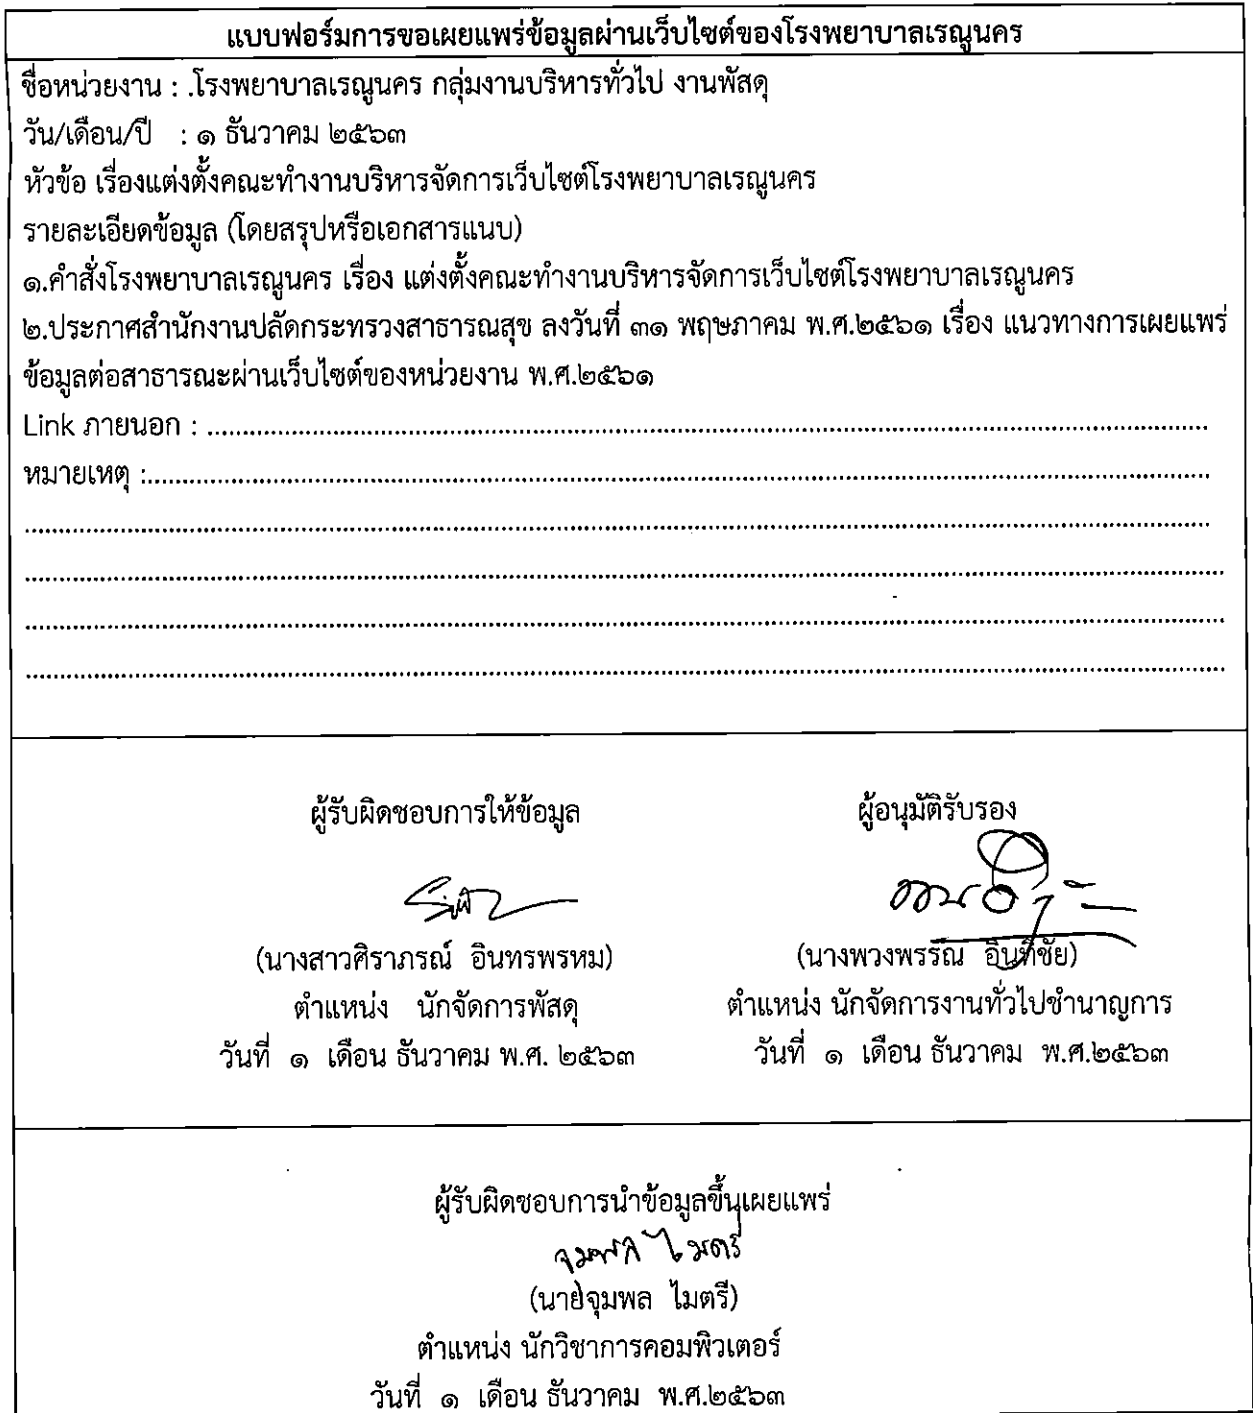 แบบฟอร์มการขอเผยแพร่ข้อมูลผ่านเว็บไซต์ของโรงพยาบาลเรณูนคร
ชื่อหน่วยงาน : .โรงพยาบาลเรณูนคร กลุ่มงานบริหารทั่วไป งานพัสดุ
วัน/เดือน/ปี : ๑ ธันวาคม ๒๕๖๓
หัวข้อ เรื่องแต่งตั้งคณะทำงานบริหารจัดการเว็บไซต์โรงพยาบาลเรณูนคร
รายละเอียดข้อมูล (โดยสรุปหรือเอกสารแนบ)
๑.คำสั่งโรงพยาบาลเรณูนคร เรื่อง แต่งตั้งคณะทำงานบริหารจัดการเว็บไซต์โรงพยาบาลเรณูนคร
๒.ประกาศสำนักงานปลัดกระทรวงสาธารณสุข ลงวันที่ ๓๑ พฤษภาคม พ.ศ.๒๕๖๑ เรื่อง แนวทางการเผยแพร่
ข้อมูลต่อสาธารณะผ่านเว็บไซต์ของหน่วยงาน พ.ศ.๒๕๖๑
Link ภายนอก : ........................................
หมายเหตุ :........................................
ผู้รับผิดชอบการให้ข้อมูล ผู้อนุมัติรับรอง
(นางสาวศิราภรณ์ อินทรพรหม) (นางพวงพรรณ อินทีชัย)
ตำแหน่ง นักจัดการพัสดุ ตำแหน่ง นักจัดการงานทั่วไปชำนาญการ
วันที่ ๑ เดือน ธันวาคม พ.ศ. ๒๕๖๓ วันที่ ๑ เดือน ธันวาคม พ.ศ.๒๕๖๓
ผู้รับผิดชอบการนำข้อมูลขึ้นเผยแพร่
จุมพล ไมตรี
(นายจุมพล ไมตรี)
ตำแหน่ง นักวิชาการคอมพิวเตอร์
วันที่ ๑ เดือน ธันวาคม พ.ศ.๒๕๖๓